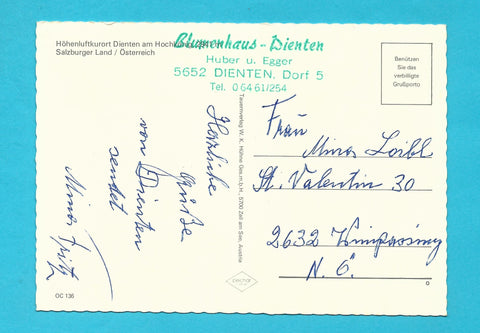 Höhenluftkurort Dienten am Hochkönig
Salzburger Land / Österreich
Blumenhaus - Dienten
Huber u. Egger
5652 DIENTEN, Dorf 5
Tel. 0 64 61/254
Benützen
Sie das
verbilligte
Grußporto
Herzliche
Grüße
von Dienten
sendet
Fritz
Tauernverlag W. K. Hühne Ges.m.b.H., 5700 Zell am See, Austria
Frau
Loibl
St. Valentin 30
2632
N. Ö.
OC 136